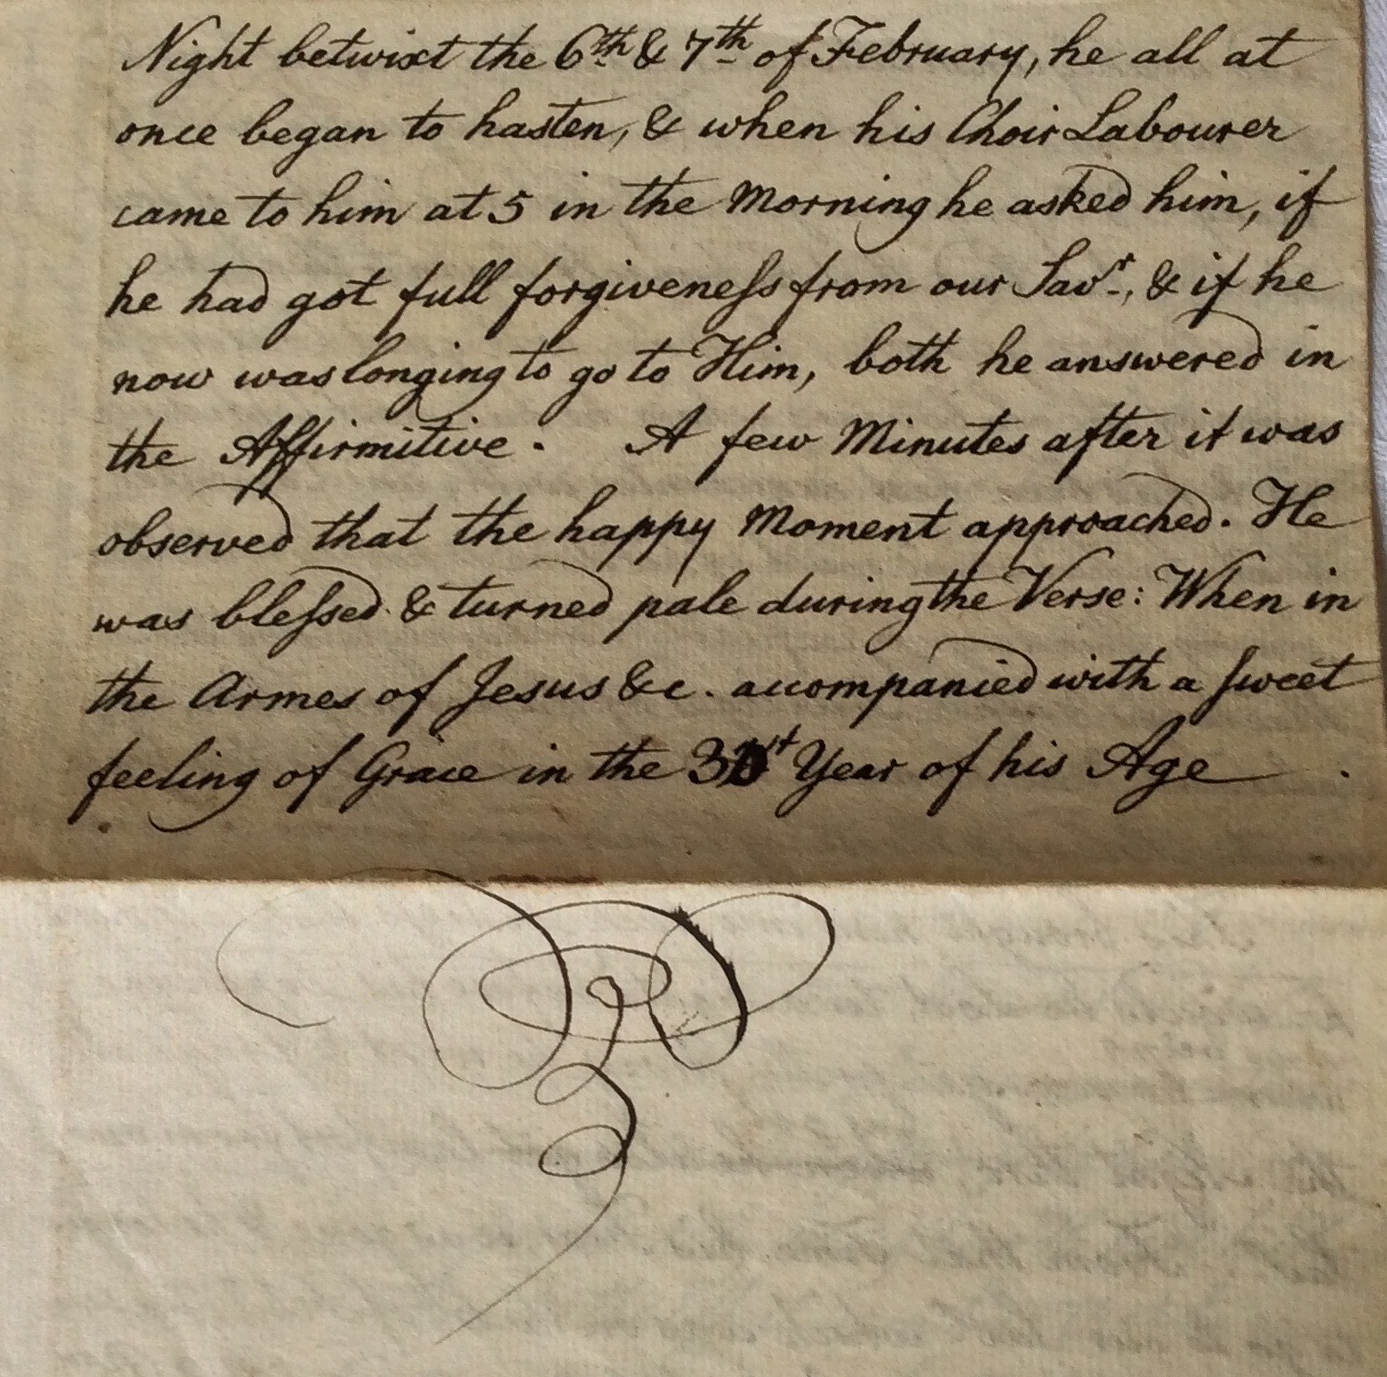 Night betwixt the 6th & 7th of February, he all at
once began to hasten, & when his Choir Labourer
came to him at 5 in the Morning he asked him, if
he had got full forgiveneſs from our Savr., & if he
now was longing to go to Him, both he answered in
the Affirmitive. A few Minutes after it was
observed that the happy Moment approached. He
was bleſsed & turned pale during the Verse: When in
the Armes of Jesus &c. acompanied with a ſweet
feeling of Grace in the 31st Year of his Age.